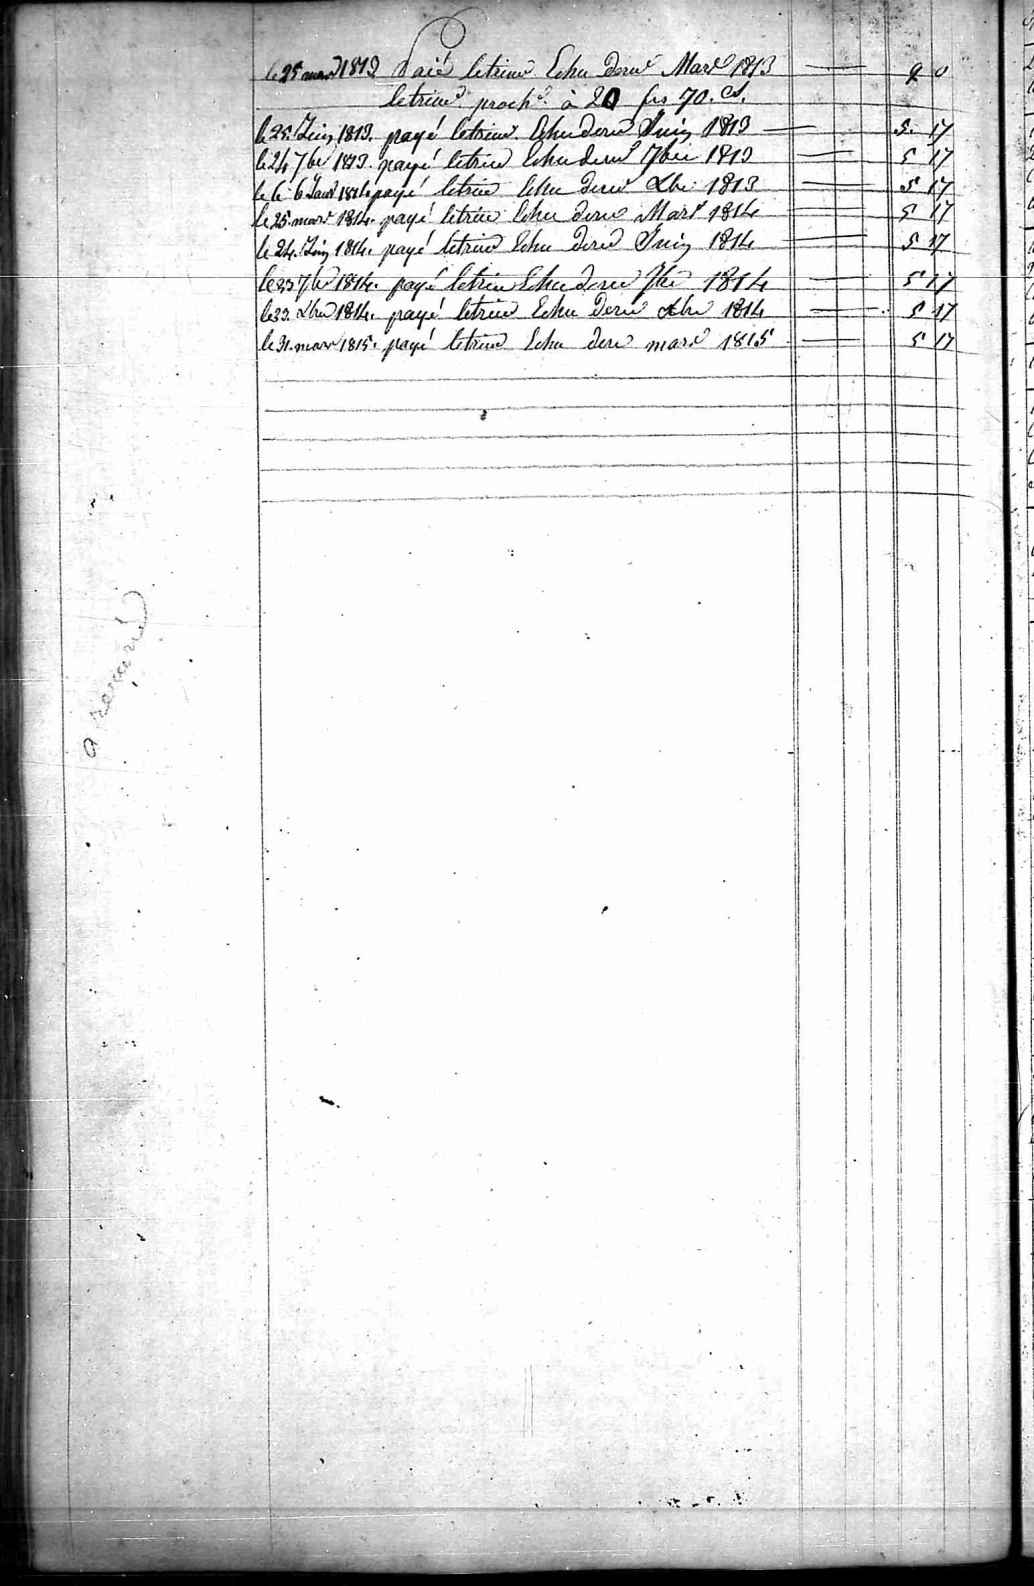 le 25 mars 1813 Paié letrimᵉ Echu Derⁿᵉ Mars 1813 — 9 0
letrimᵉ procħⁿ à 20 frs 70. Cs.
le 25. Juin 1813. payé letrimᵉ Echu derⁿᵉ Juin 1813 — 5. 17
le 24 7bre 1813. payé letrimᵉ Echu derⁿᵉ 7bre 1813 — 5 17
le 6 Janv 1814. payé letrimᵉ Echu derⁿᵉ Xbre 1813 — 5 17
le 25. mars 1814. payé letrimᵉ Echu derⁿᵉ Mars 1814 — 5 17
le 24. Juin 1814. payé letrimᵉ Echu derⁿᵉ Juin 1814 — 5 17
le 23 7bre 1814. payé letrimᵉ Echu derⁿᵉ 7bre 1814 — 5 17
le 23. Xbre 1814. payé letrimᵉ Echu Derⁿᵉ Xbre 1814 — 5 17
le 31. mars 1815. payé letrimᵉ Echu derⁿᵉ mars 1815 — 5 17